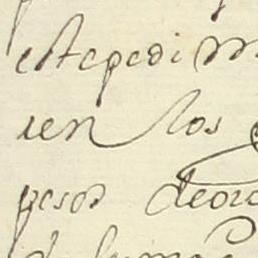 este pedim
ien los
pesos deoro